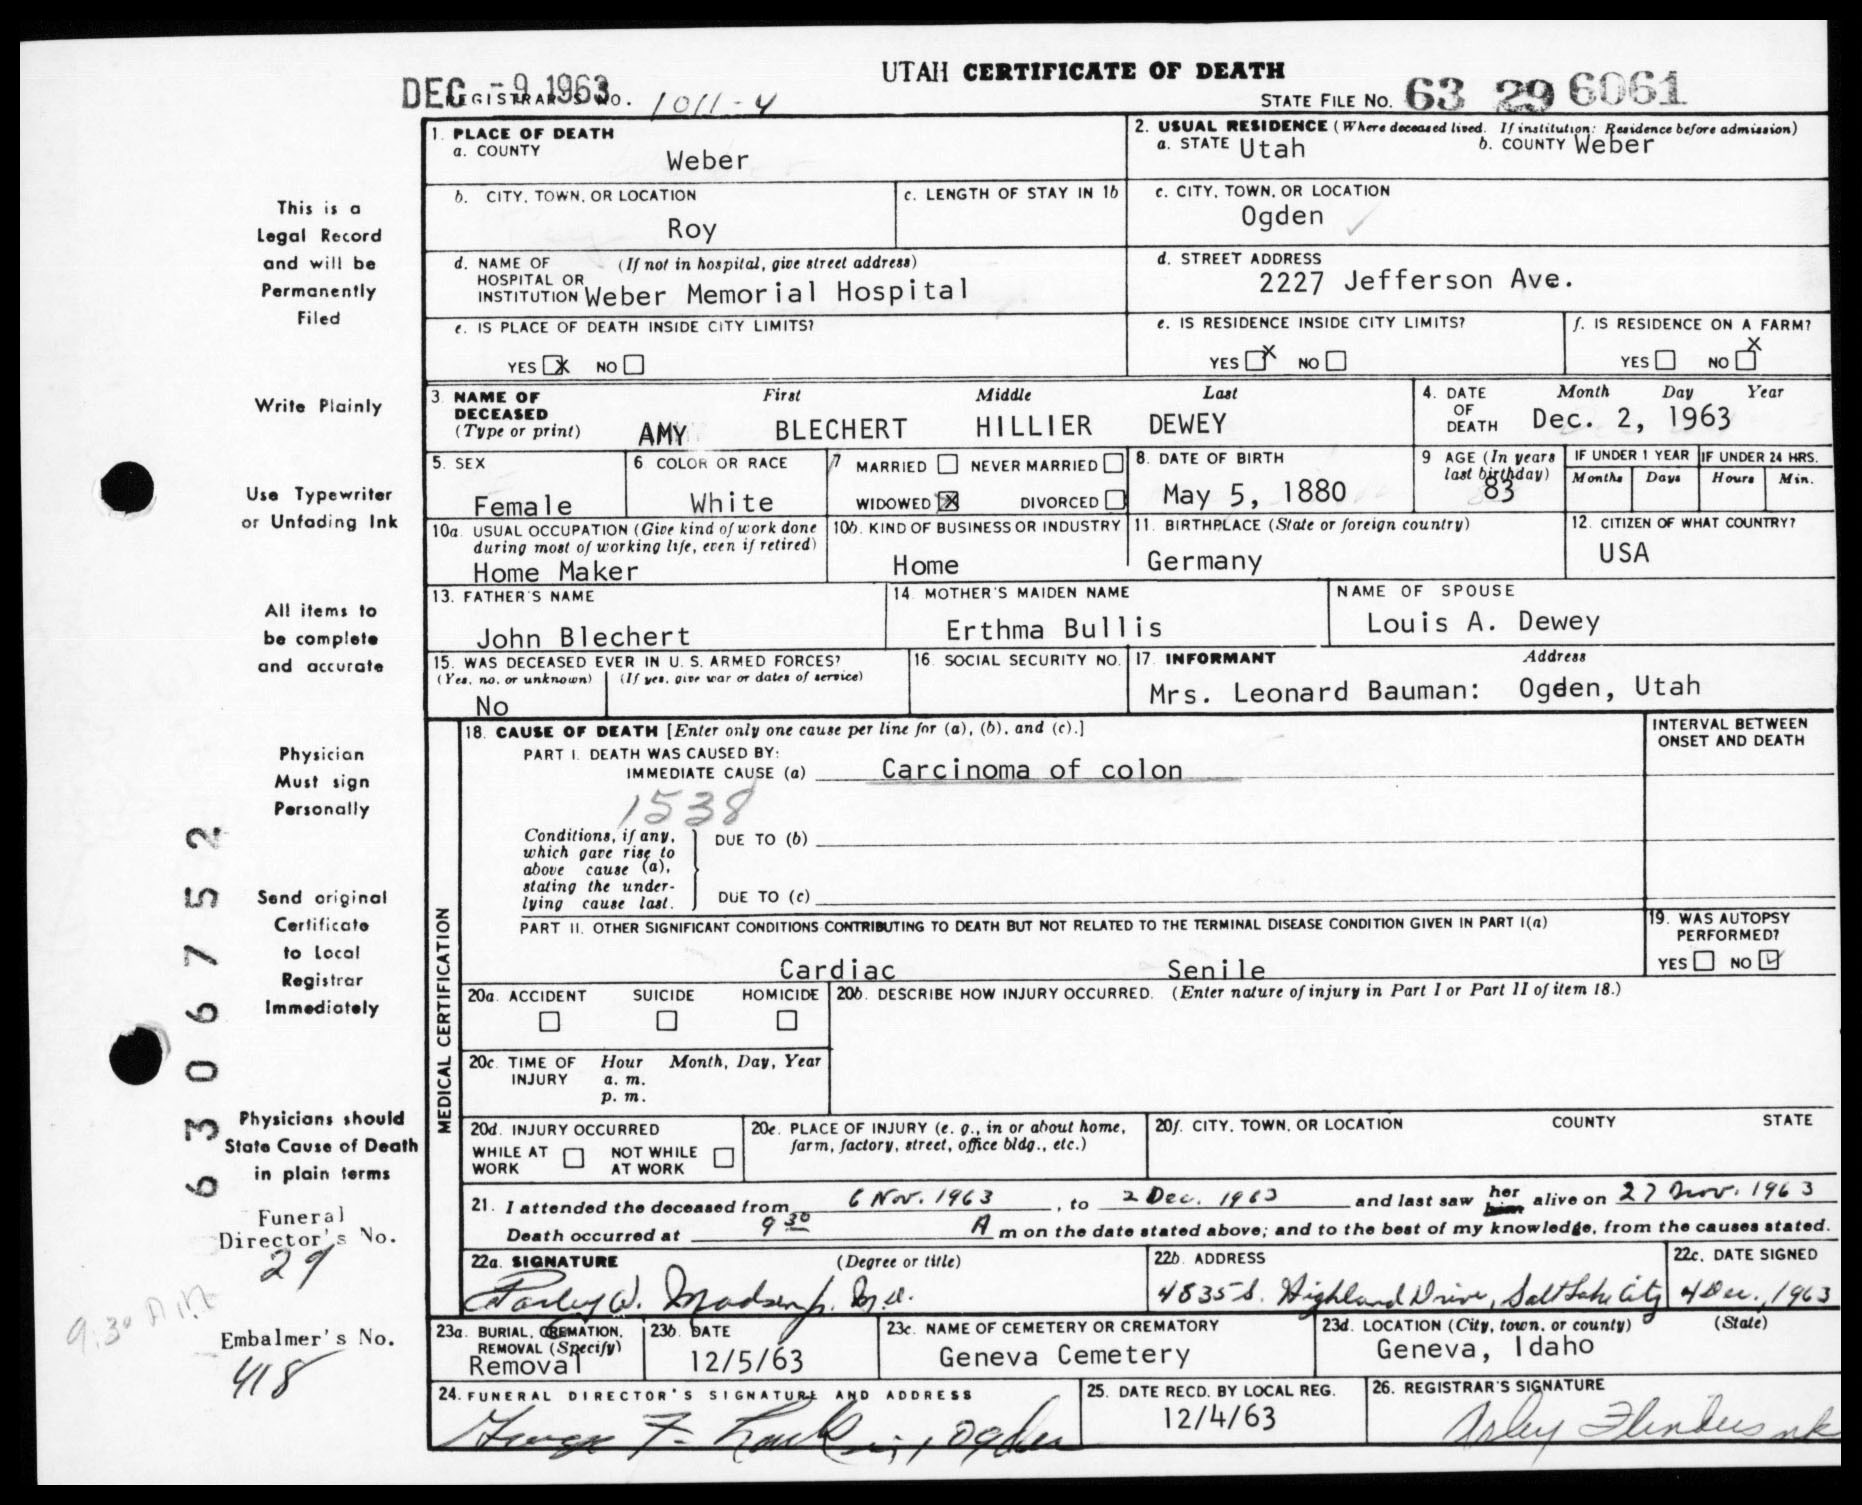 UTAH CERTIFICATE OF DEATH
DEC -9 1963
REGISTRAR'S NO. 1011-4
STATE FILE NO. 63 29 6061
1. PLACE OF DEATH
a. COUNTY
Weber
2. USUAL RESIDENCE (Where deceased lived. If institution: Residence before admission)
a. STATE Utah
b. COUNTY Weber
b. CITY, TOWN, OR LOCATION
Roy
c. LENGTH OF STAY IN 1b
c. CITY, TOWN, OR LOCATION
Ogden
d. NAME OF (If not in hospital, give street address)
HOSPITAL OR
INSTITUTION Weber Memorial Hospital
d. STREET ADDRESS
2227 Jefferson Ave.
e. IS PLACE OF DEATH INSIDE CITY LIMITS?
YES X NO
e. IS RESIDENCE INSIDE CITY LIMITS?
YES X NO
f. IS RESIDENCE ON A FARM?
YES NO X
3. NAME OF DECEASED (Type or print)
First Middle Last
AMY BLECHERT HILLIER DEWEY
4. DATE OF DEATH
Month Day Year
Dec. 2, 1963
5. SEX
Female
6 COLOR OR RACE
White
7 MARRIED NEVER MARRIED
WIDOWED X DIVORCED
8. DATE OF BIRTH
May 5, 1880
9 AGE (In years last birthday)
83
IF UNDER 1 YEAR
Months Days
IF UNDER 24 HRS.
Hours Min.
10a. USUAL OCCUPATION (Give kind of work done
during most of working life, even if retired)
Home Maker
10b. KIND OF BUSINESS OR INDUSTRY
Home
11. BIRTHPLACE (State or foreign country)
Germany
12. CITIZEN OF WHAT COUNTRY?
USA
13. FATHER'S NAME
John Blechert
14. MOTHER'S MAIDEN NAME
Erthma Bullis
NAME OF SPOUSE
Louis A. Dewey
15. WAS DECEASED EVER IN U. S. ARMED FORCES?
(Yes, no, or unknown) (If yes, give war or dates of service)
No
16. SOCIAL SECURITY NO.
17. INFORMANT Address
Mrs. Leonard Bauman: Ogden, Utah
MEDICAL CERTIFICATION
18. CAUSE OF DEATH [Enter only one cause per line for (a), (b), and (c).]
PART I. DEATH WAS CAUSED BY:
IMMEDIATE CAUSE (a) Carcinoma of colon
1538
INTERVAL BETWEEN
ONSET AND DEATH
Conditions, if any,
which gave rise to
above cause (a),
stating the under-
lying cause last.
DUE TO (b)
DUE TO (c)
PART II. OTHER SIGNIFICANT CONDITIONS CONTRIBUTING TO DEATH BUT NOT RELATED TO THE TERMINAL DISEASE CONDITION GIVEN IN PART I(a)
Cardiac Senile
19. WAS AUTOPSY
PERFORMED?
YES NO ✓
20a. ACCIDENT SUICIDE HOMICIDE
20b. DESCRIBE HOW INJURY OCCURRED. (Enter nature of injury in Part I or Part II of item 18.)
20c. TIME OF INJURY
Hour Month, Day, Year
a. m.
p. m.
20d. INJURY OCCURRED
WHILE AT WORK NOT WHILE AT WORK
20e. PLACE OF INJURY (e. g., in or about home,
farm, factory, street, office bldg., etc.)
20f. CITY, TOWN, OR LOCATION COUNTY STATE
21. I attended the deceased from 6 Nov. 1963, to 2 Dec. 1963 and last saw her him alive on 27 Nov. 1963
Death occurred at 9 30 A m on the date stated above; and to the best of my knowledge, from the causes stated.
22a. SIGNATURE (Degree or title)
Parley W. Madsen Jr. M.D.
22b. ADDRESS
4835 S. Highland Drive, Salt Lake City
22c. DATE SIGNED
4 Dec., 1963
23a. BURIAL, CREMATION,
REMOVAL (Specify)
Removal
23b. DATE
12/5/63
23c. NAME OF CEMETERY OR CREMATORY
Geneva Cemetery
23d. LOCATION (City, town, or county) (State)
Geneva, Idaho
24. FUNERAL DIRECTOR'S SIGNATURE AND ADDRESS
George F. Ogden
25. DATE RECD. BY LOCAL REG.
12/4/63
26. REGISTRAR'S SIGNATURE
This is a
Legal Record
and will be
Permanently
Filed
Write Plainly
Use Typewriter
or Unfading Ink
All items to
be complete
and accurate
Physician
Must sign
Personally
Send original
Certificate
to Local
Registrar
Immediately
Physicians should
State Cause of Death
in plain terms
Funeral
Director's No.
29
9:30 A.M.
Embalmer's No.
418
6306752